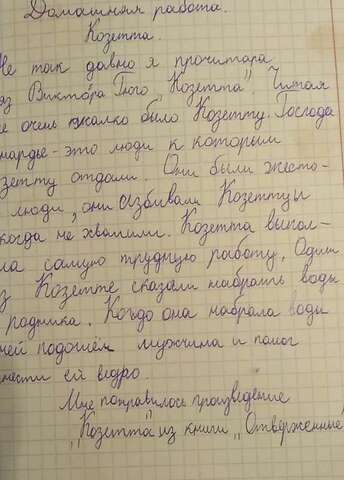 Домашняя работа.
Козетта.
Не так давно я прочитара
аз Виктора Гюго „Козетта". Читая
е очень жалко было Козетту. Господа
нардье - это люди к которым
зетту отдали. Они были жесто-
люди, они избивали Козетту и
когда не хвалили. Козетта выпол-
ла самую трудную работу. Один
з Козетте сказали набрать воды
родника. Когдо она набрала воды
ней подошёл мужчина и помог
нести ей ведро.
Мне понравилось произведение
„Козетта" из книги „Отверженные